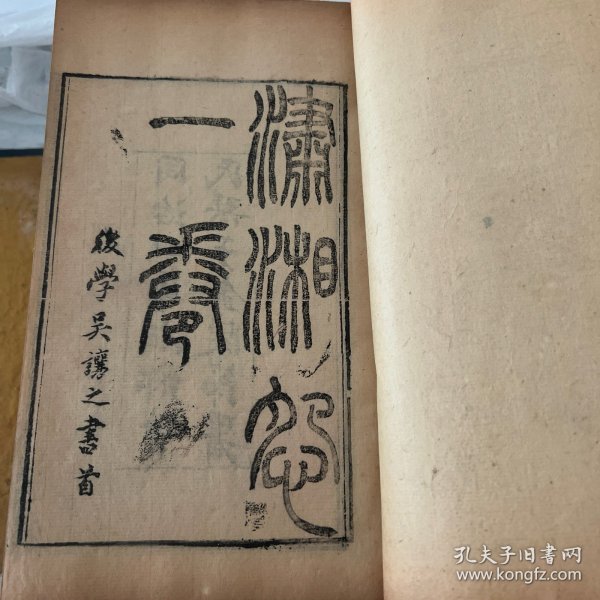 瀟湘怨
一卷
後學吳讓之書首
孔夫子旧书网
www.kongfz.com